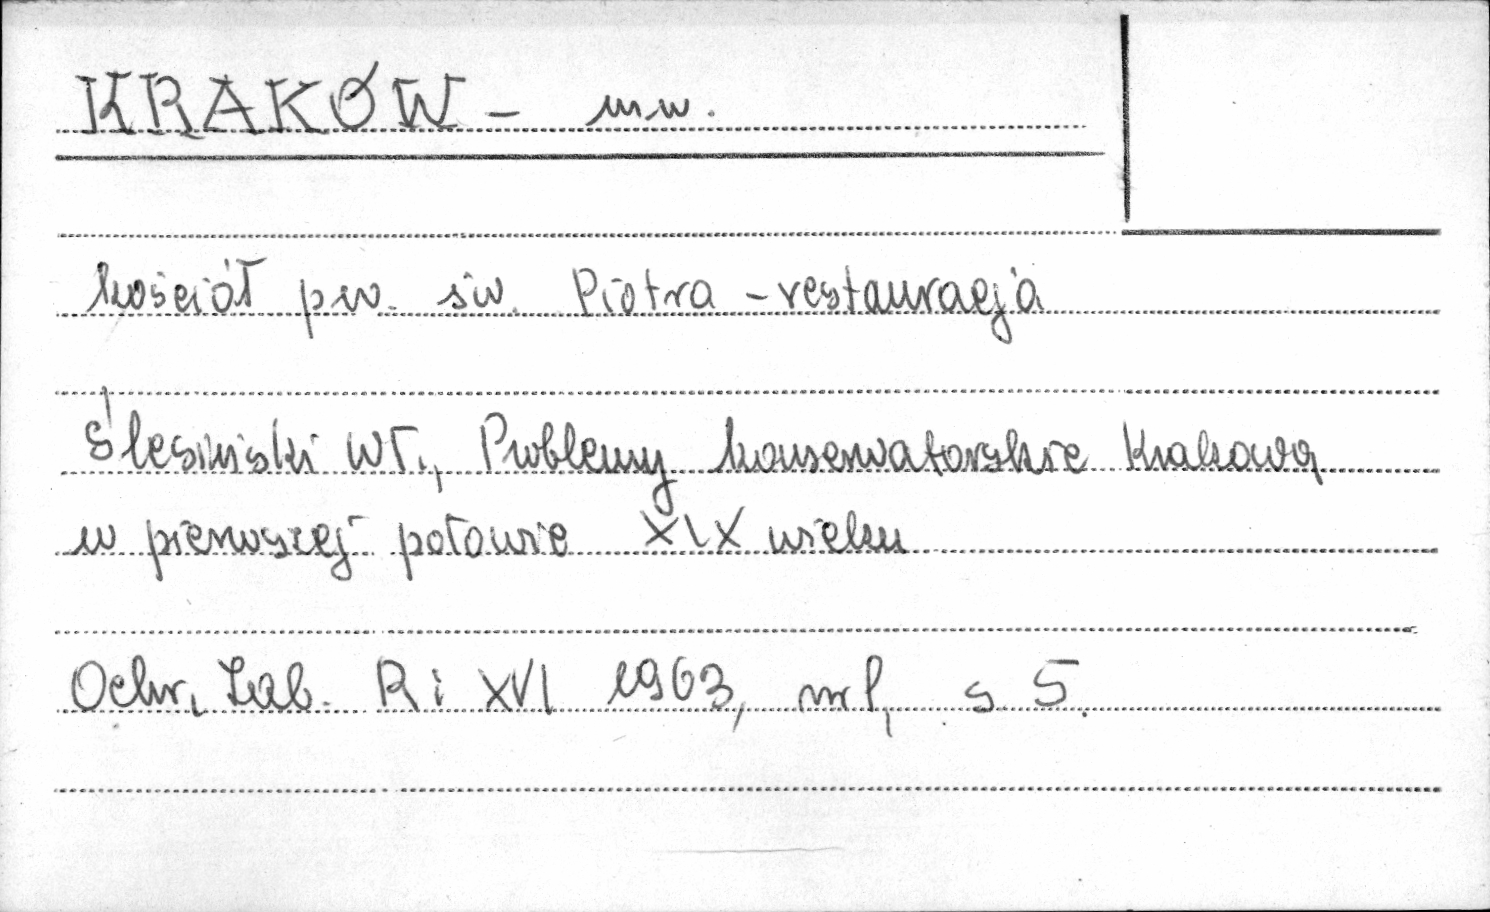 KRAKÓW - m.w.
kościół p.w. św. Piotra - restauracja
Ślesiński Wł., Problemy konserwatorskie Krakowa
w pierwszej połowie XIX wieku
Ochr. Zab. R. XVI 1963, nr 1, s 5.